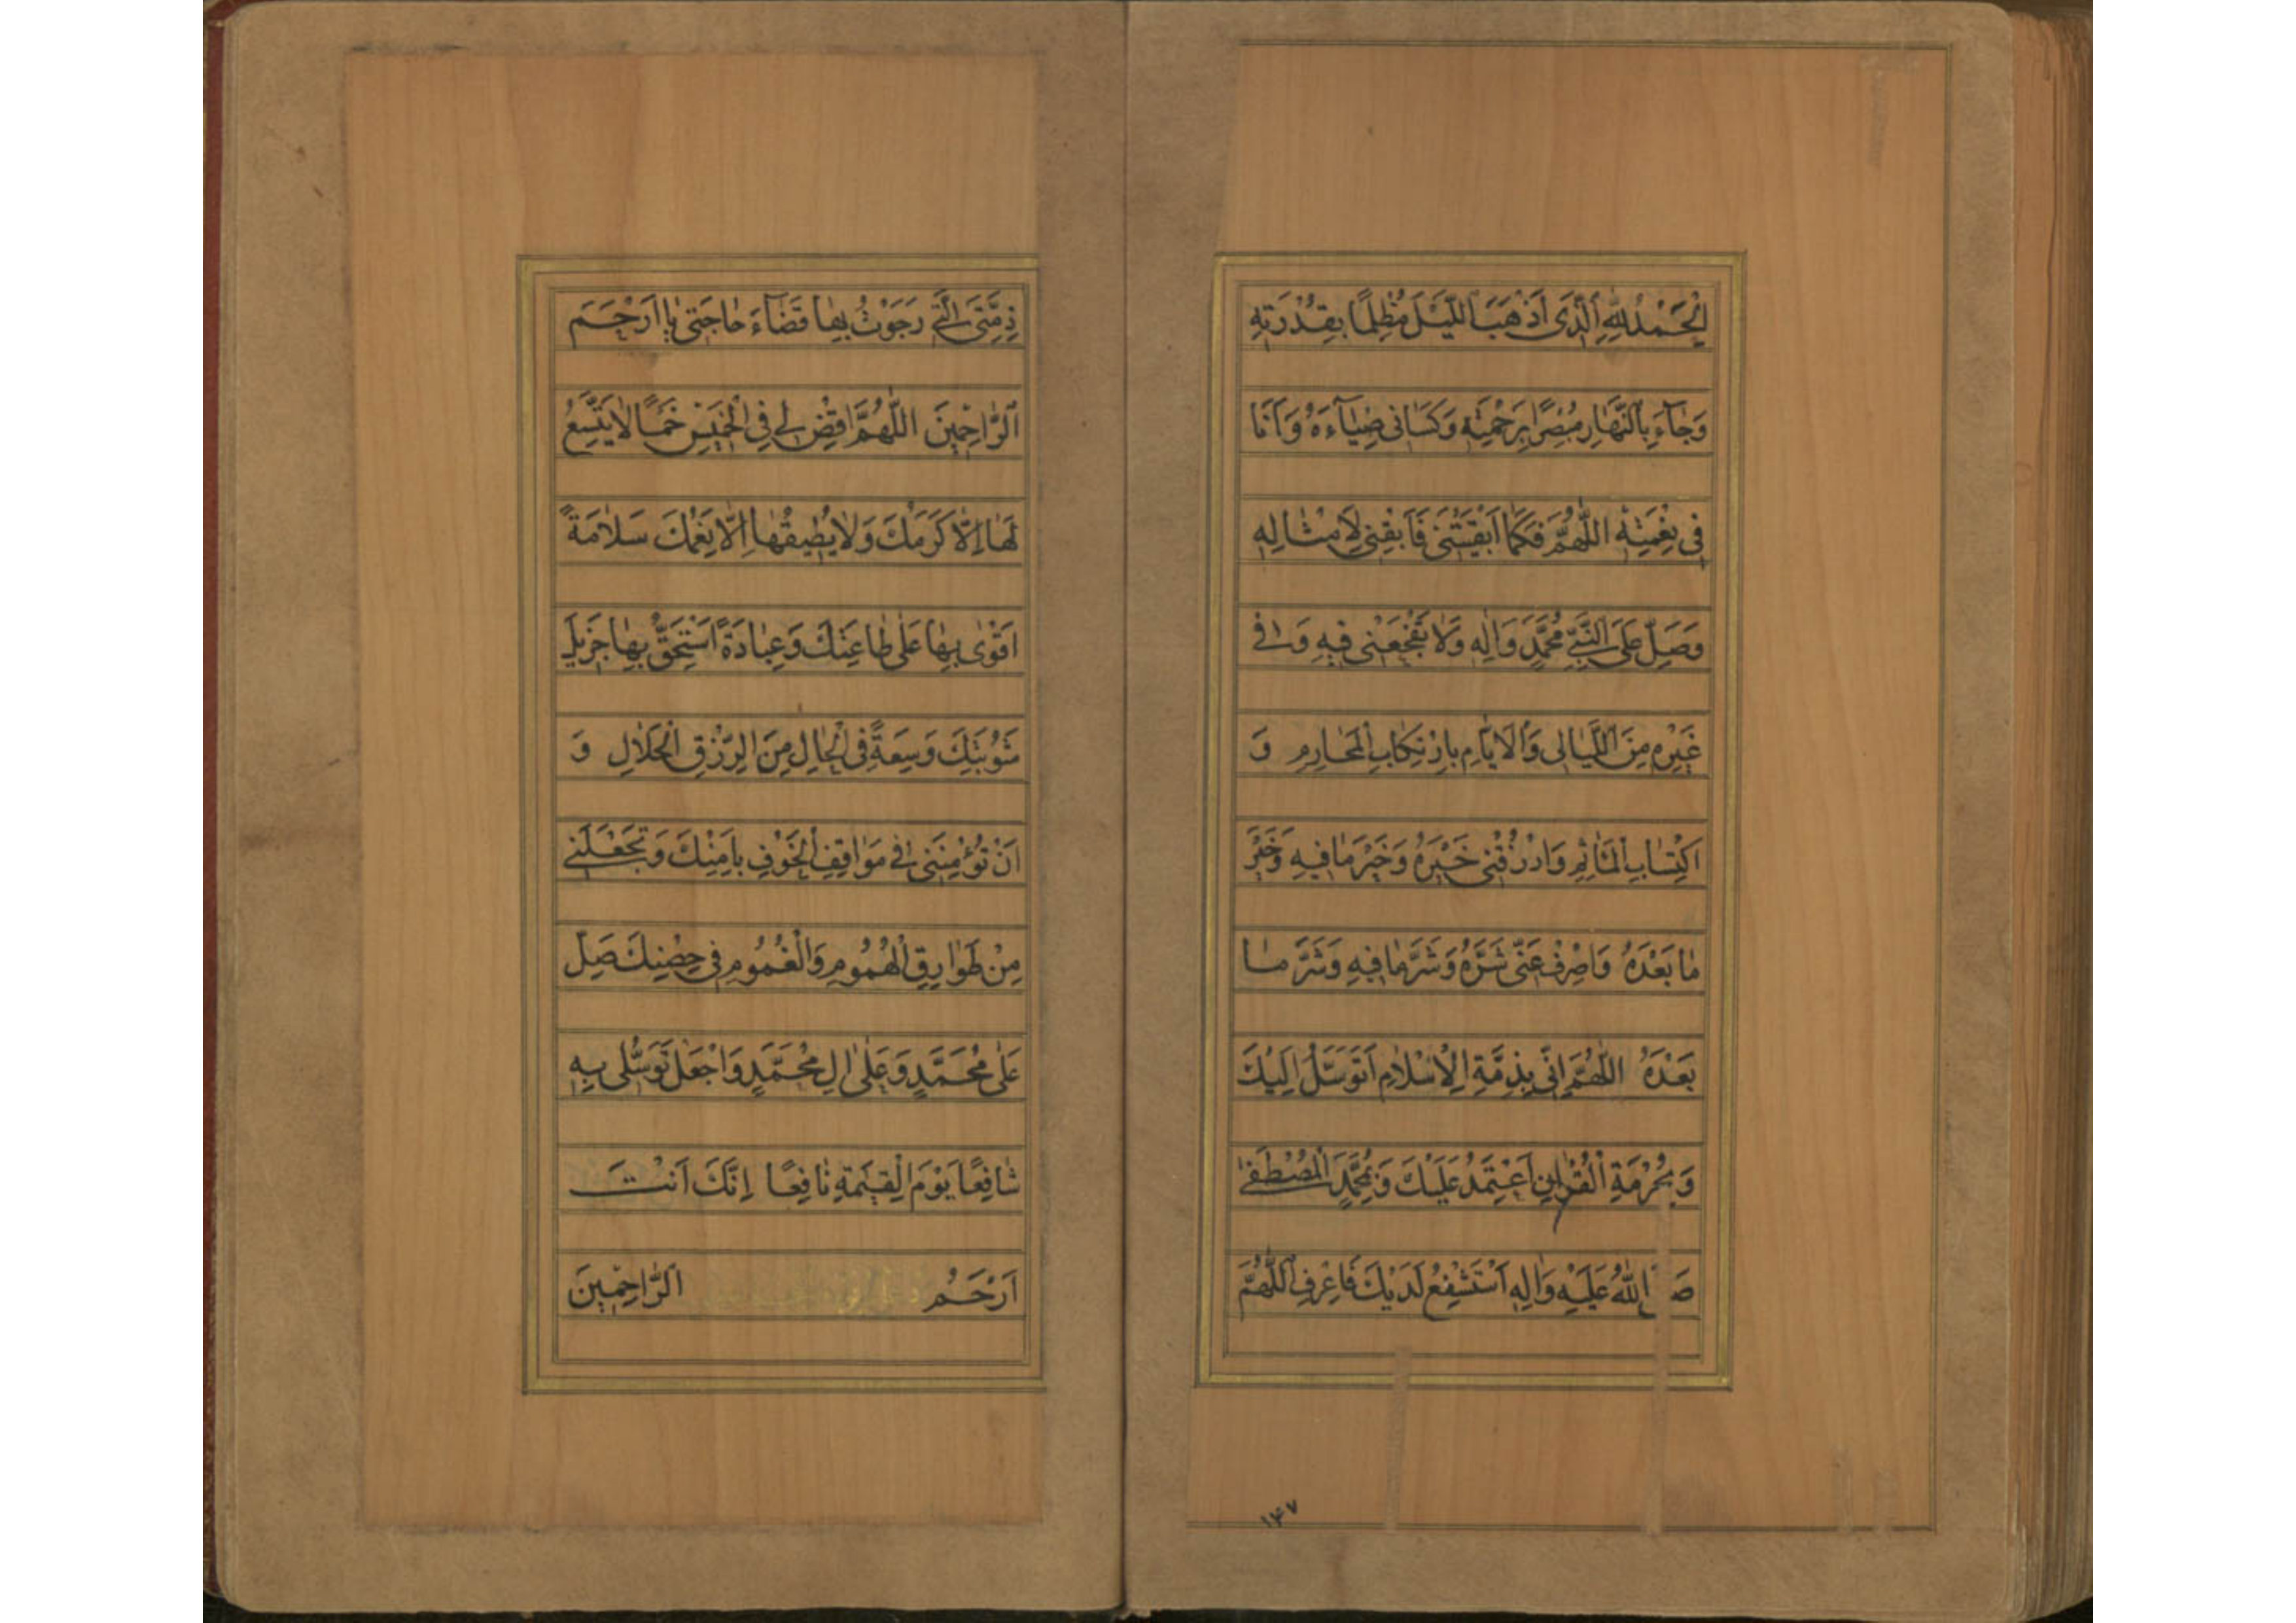 اَلْحَمْدُ لِلّٰهِ الَّذَى اَذْهَبَ اللَّيْلَ مُظْلِمًا بِقُدْرَتِهِ
وَجٰآءَ بِالنَّهٰارِ مُبْصِرًا بِرَحْمَتِهِ وَكَسٰانى ضِيٰآءَهُ وَاَنَا
فى نِعْمَتِهِ اللّٰهُمَّ فَكَمٰا اَبْقَيْتَنى فَاَبْقِنى لِاَمْثٰالِهِ
وَصَلِّ عَلَى النَّبِىِّ مُحَمَّدٍ وَاٰلِهِ وَلٰا تَفْجَعْنى فيهِ وَفى
غَيْرِهِ مِنَ اللَّيٰالى وَالْاَيّٰامِ بِارْتِكٰابِ الْمَحٰارِمِ وَ
اكْتِسٰابِ الْمَاٰثِمِ وَارْزُقْنى خَيْرَهُ وَخَيْرَ مٰا فيهِ وَخَيْرَ
مٰا بَعْدَهُ وَاصْرِفْ عَنّى شَرَّهُ وَشَرَّ مٰا فيهِ وَشَرَّ مٰا
بَعْدَهُ اللّٰهُمَّ اِنّى بِذِمَّةِ الْاِسْلٰامِ اَتَوَسَّلُ اِلَيْكَ
وَبِحُرْمَةِ الْقُرْاٰنِ اَعْتَمِدُ عَلَيْكَ وَبِمُحَمَّدٍ الْمُصْطَفٰى
صَ اللّٰهُ عَلَيْهِ وَاٰلِهِ اَسْتَشْفِعُ لَدَيْكَ فَاعْرِفِ اللّٰهُمَّ
۱۴۷
ذِمَّتِىَ الَّتى رَجَوْتُ بِهٰا قَضٰآءَ حٰاجَتى يٰا اَرْحَمَ
الرّٰاحِمينَ اللّٰهُمَّ اقْضِ لى فِى الْخَميسِ خَمْسًا لٰا يَتَّسِعُ
لَهٰا اِلّٰا كَرَمُكَ وَلٰا يُطيقُهٰا اِلّٰا نِعَمُكَ سَلٰامَةً
اَقْوٰى بِهٰا عَلٰى طٰاعَتِكَ وَعِبٰادَةً اَسْتَحِقُّ بِهٰا جَزيلَ
مَثُوبَتِكَ وَسِعَةً فِى الْحٰالِ مِنَ الرِّزْقِ الْحَلٰالِ وَ
اَنْ تُؤْمِنَنى فى مَوٰاقِفِ الْخَوْفِ بِاَمْنِكَ وَتَجْعَلَنى
مِنْ طَوٰارِقِ الْهُمُومِ وَالْغُمُومِ فى حِصْنِكَ صَلِّ
عَلٰى مُحَمَّدٍ وَعَلٰى اٰلِ مُحَمَّدٍ وَاجْعَلْ تَوَسُّلى بِهِ
شٰافِعًا يَوْمَ الْقِيٰمَةِ نٰافِعًا اِنَّكَ اَنْتَ
اَرْحَمُ الرّٰاحِمينَ